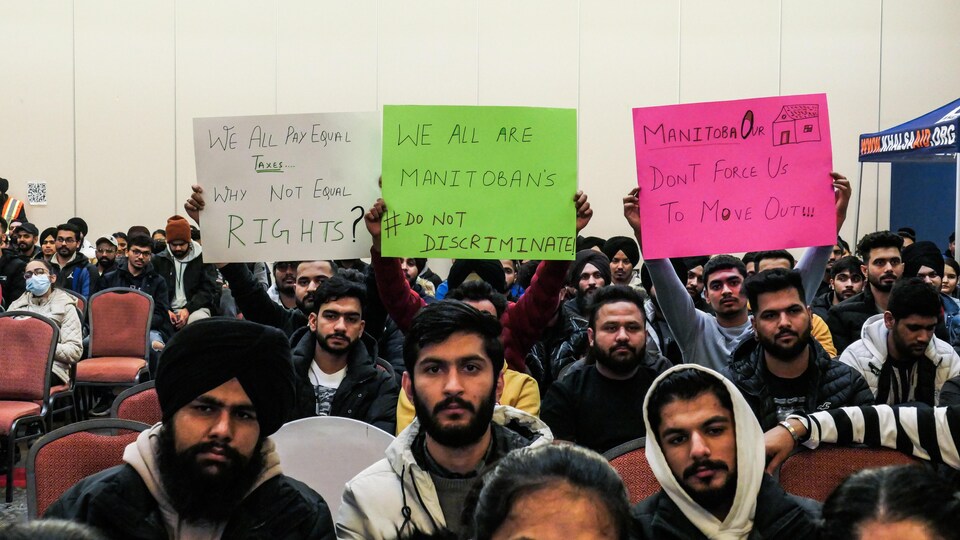 WE ALL PAY EQUAL
TAXES...
WHY NOT EQUAL
RIGHTS?
WE ALL ARE
MANITOBAN'S
#DO NOT
DISCRIMINATE!
MANITOBA OUR
DONT FORCE US
TO MOVE OUT!!!
WWW.KHALSAAID.ORG